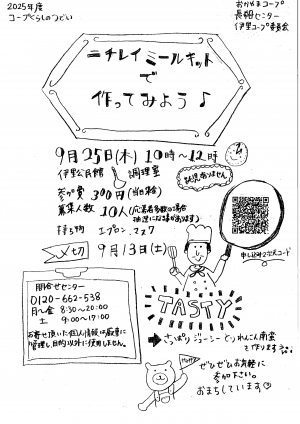 2025年度
コープくらしのつどい
おかやまコープ
長船センター
伊里コープ委員会
ニチレイ ミールキット
で
作ってみよう♪
9月25日(木) 10時〜12時
伊里公民館 調理室
試食ありません
参加費 300円(当日集金)
募集人数 10人(応募者多数の場合
抽選になる事があります)
持ち物 エプロン、マスク
〆切 9月13日(土)
申し込み二次元コード
問合せセンター
0120-662-538
月〜金 8:30〜20:00
土 9:00〜17:00
お寄せ頂いた個人情報は厳重に
管理し、目的以外に使用しません。
TASTY
さっぱりジューシーとりれんこん南蛮
を作ります
Happy
ぜひぜひお気軽に
参加下さい。
おまちしています